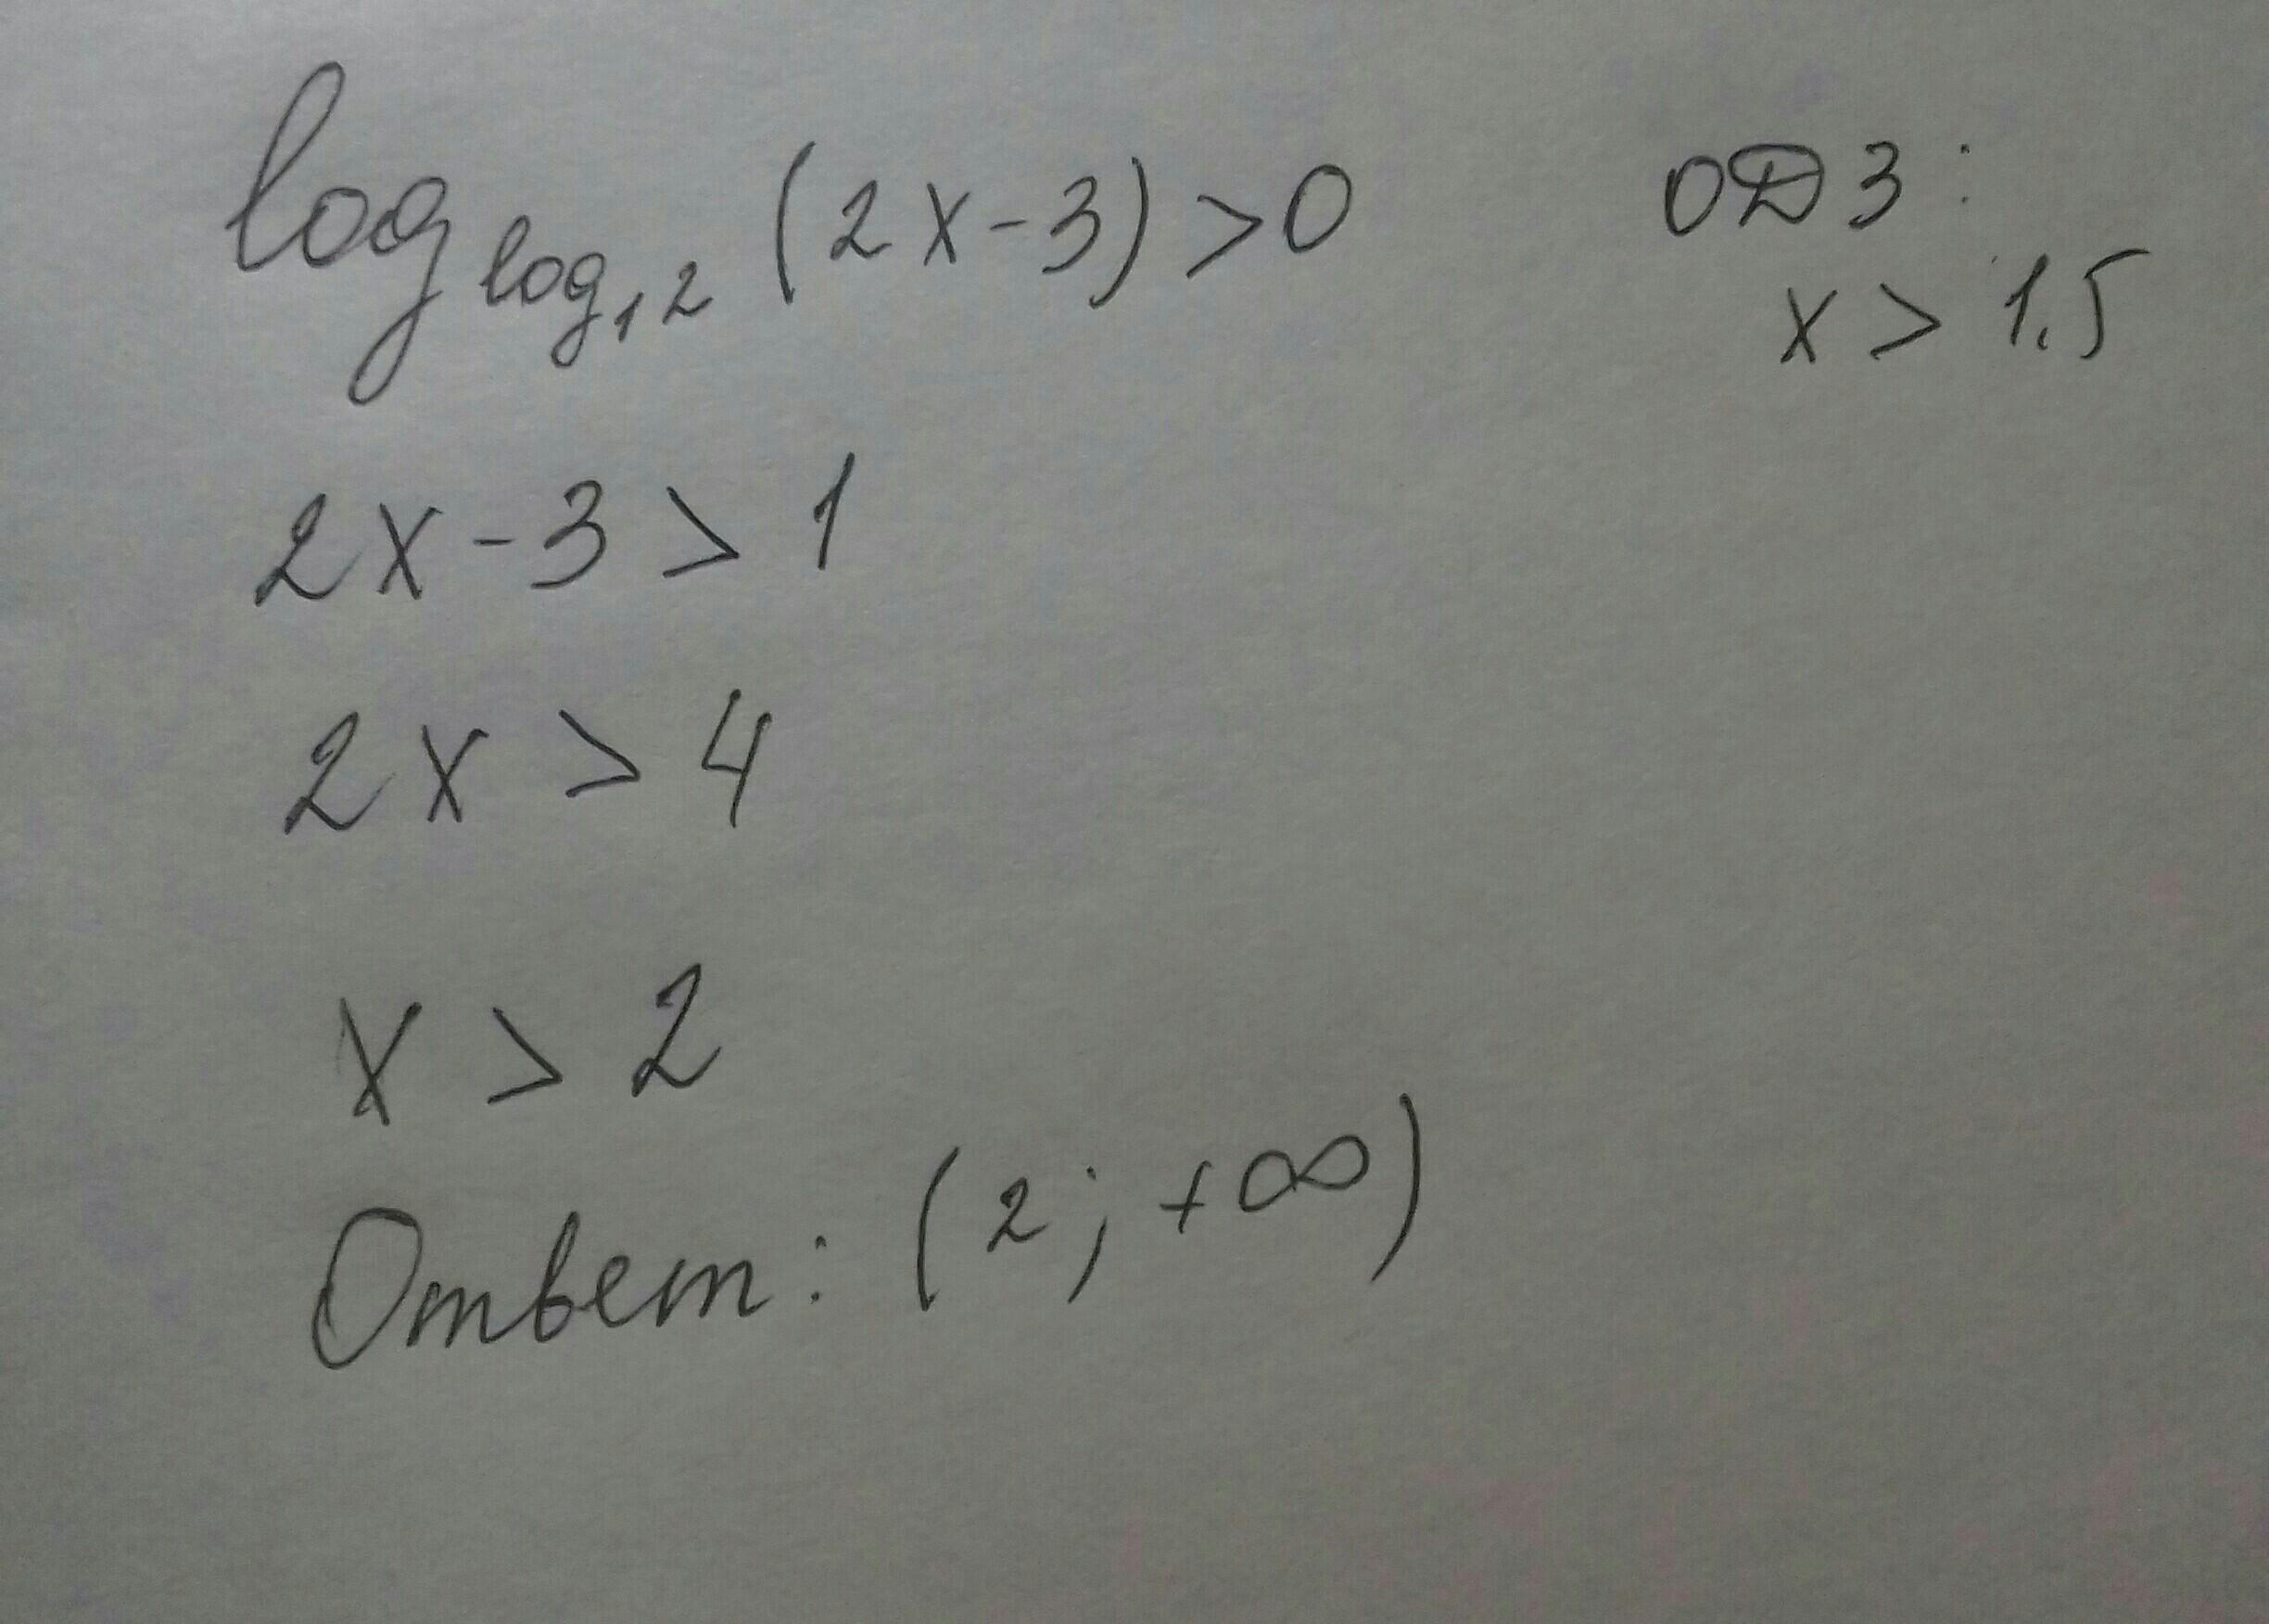 log log₁ 2 (2x-3)>0
ОДЗ:
x > 1.5
2x-3>1
2x > 4
x > 2
Ответ: (2; +∞)